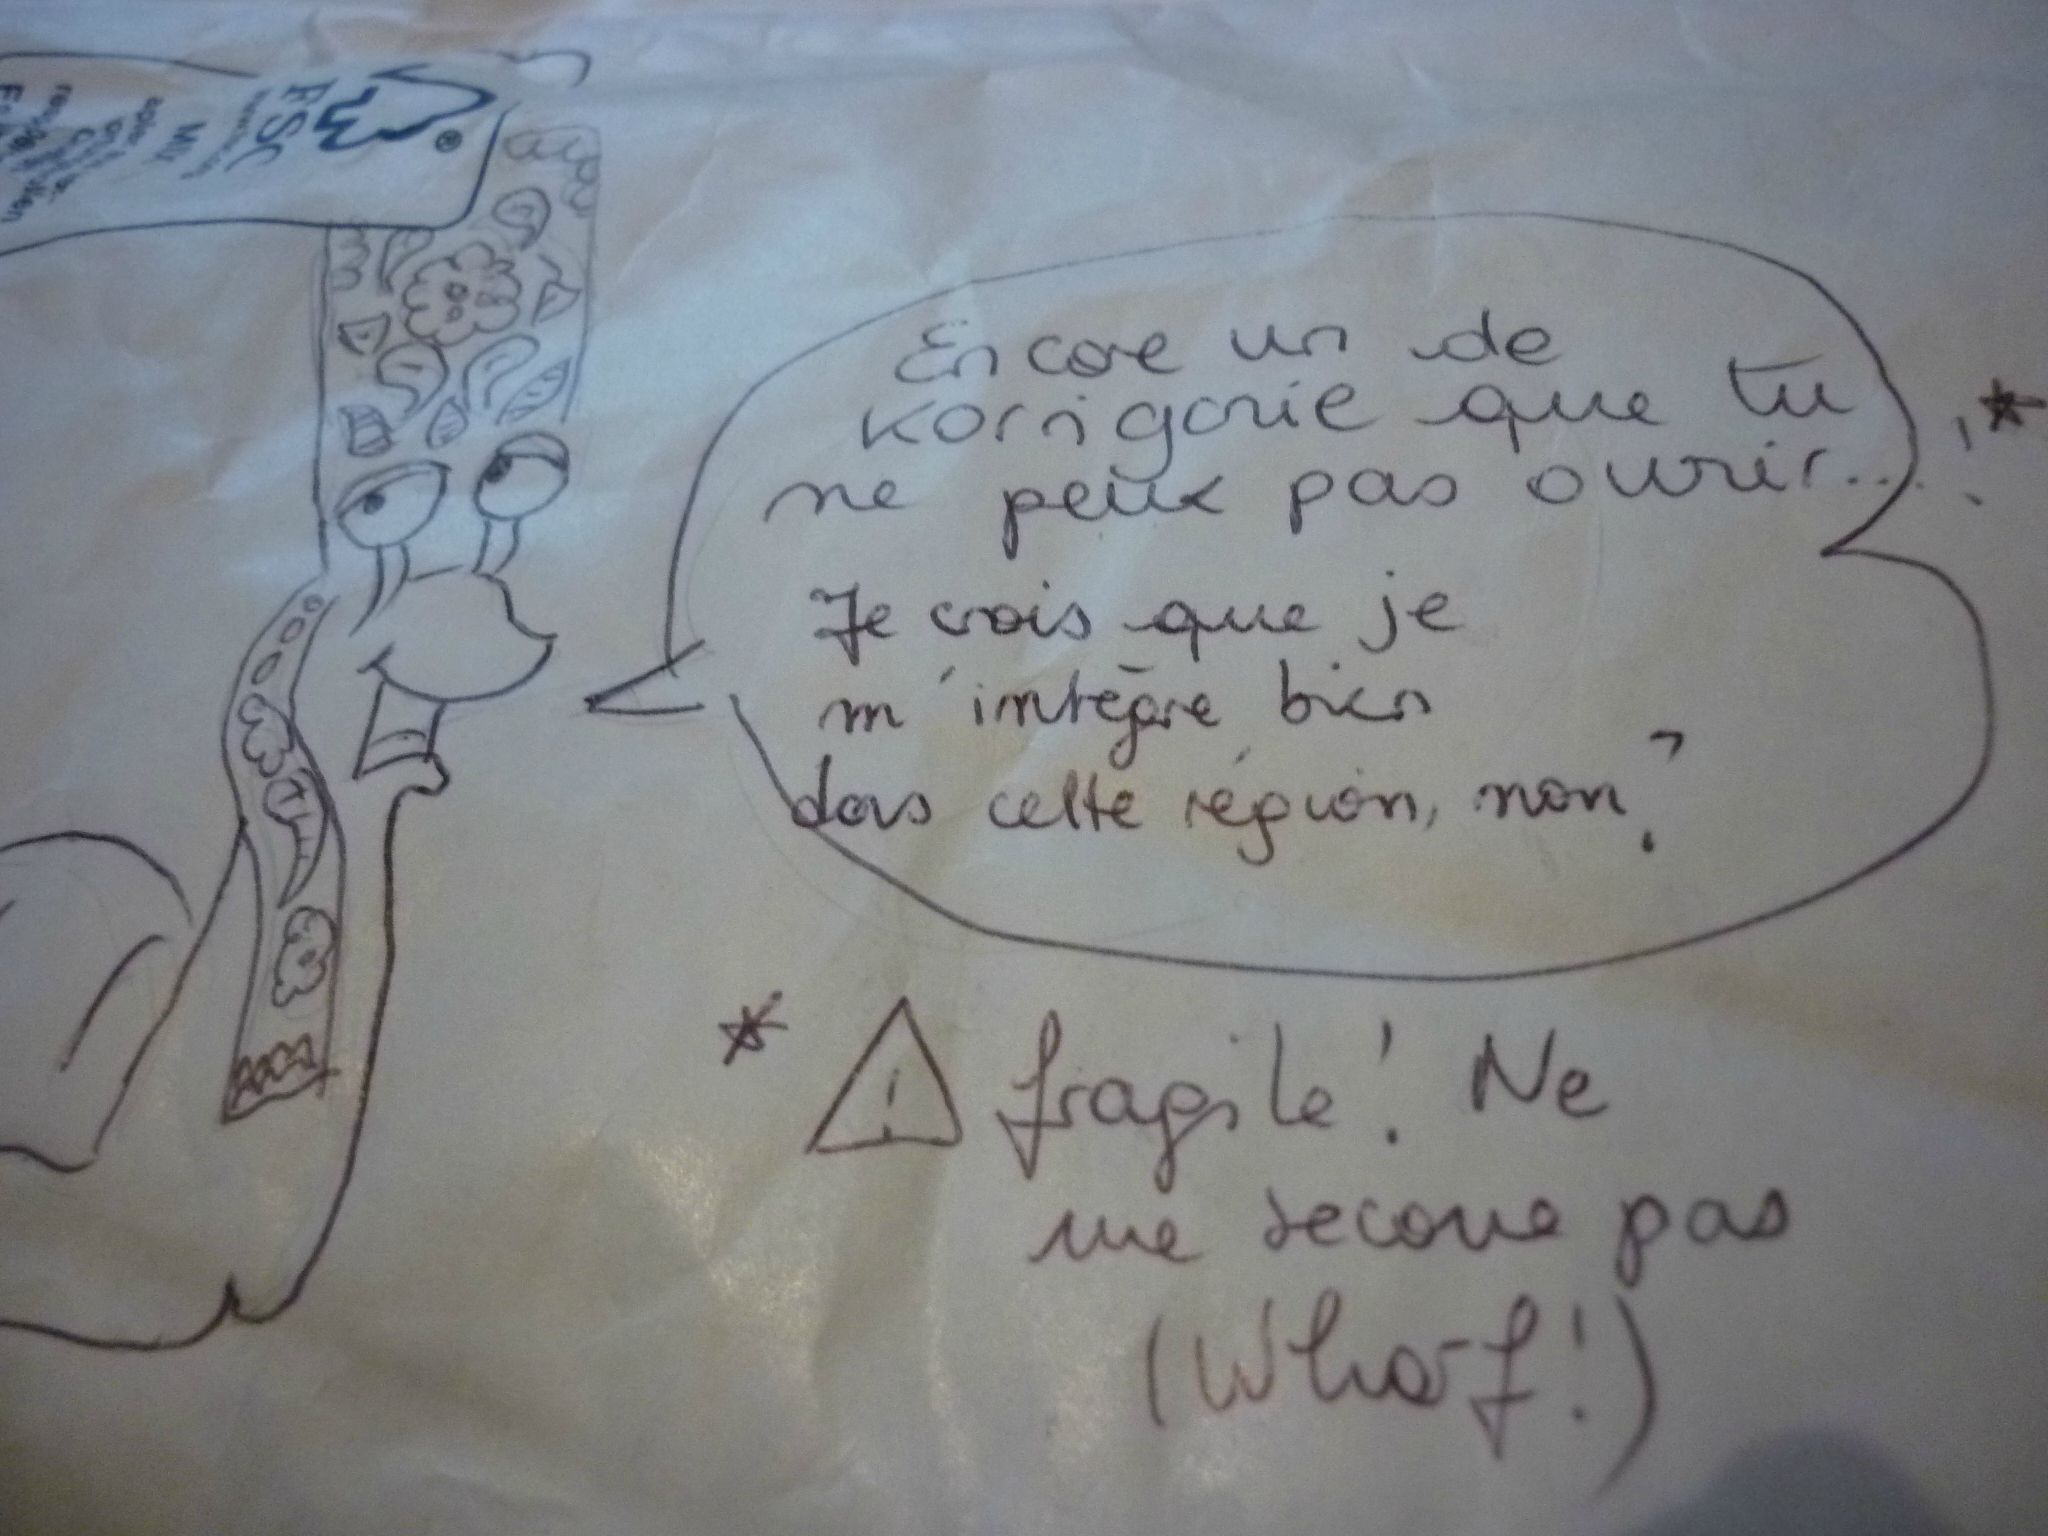 FSC
MIX
Encore un de
Korrigorie que tu
ne peux pas ouvrir...!*
Je crois que je
m'intègre bien
dans cette région, non?
* ! fragile! Ne
me secoue pas
(Wharf!)